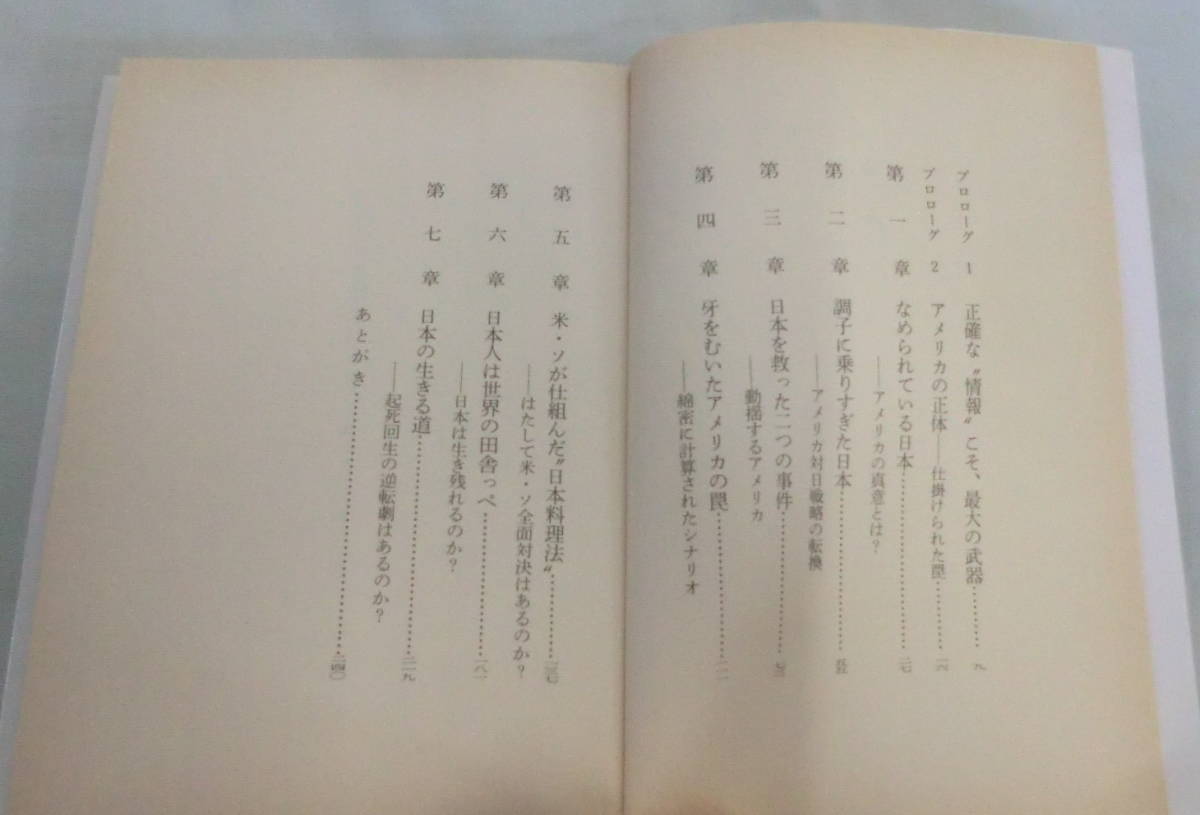 プロローグ 1 正確な〝情報〟こそ、最大の武器………九
プロローグ 2 アメリカの正体——仕掛けられた罠………一六
第一章 なめられている日本………二七
——アメリカの真意とは?
第二章 調子に乗りすぎた日本………五五
——アメリカ対日戦略の転換
第三章 日本を救った二つの事件………七三
——動揺するアメリカ
第四章 牙をむいたアメリカの罠………一一一
——綿密に計算されたシナリオ
第五章 米・ソが仕組んだ〝日本料理法〟………一三七
——はたして米・ソ全面対決はあるのか?
第六章 日本人は世界の田舎っぺ………一八一
——日本は生き残れるのか?
第七章 日本の生きる道………二一九
——起死回生の逆転劇はあるのか?
あとがき………二四〇